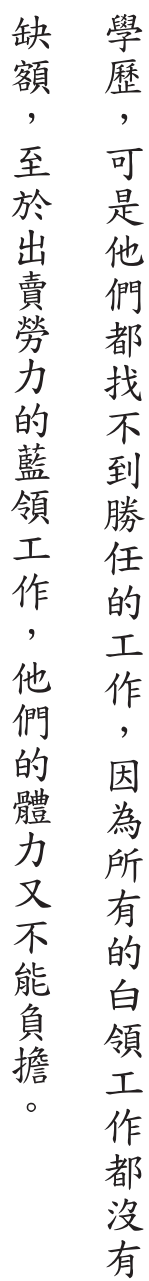 學歷，可是他們都找不到勝任的工作，因為所有的白領工作都沒有
缺額，至於出賣勞力的藍領工作，他們的體力又不能負擔。